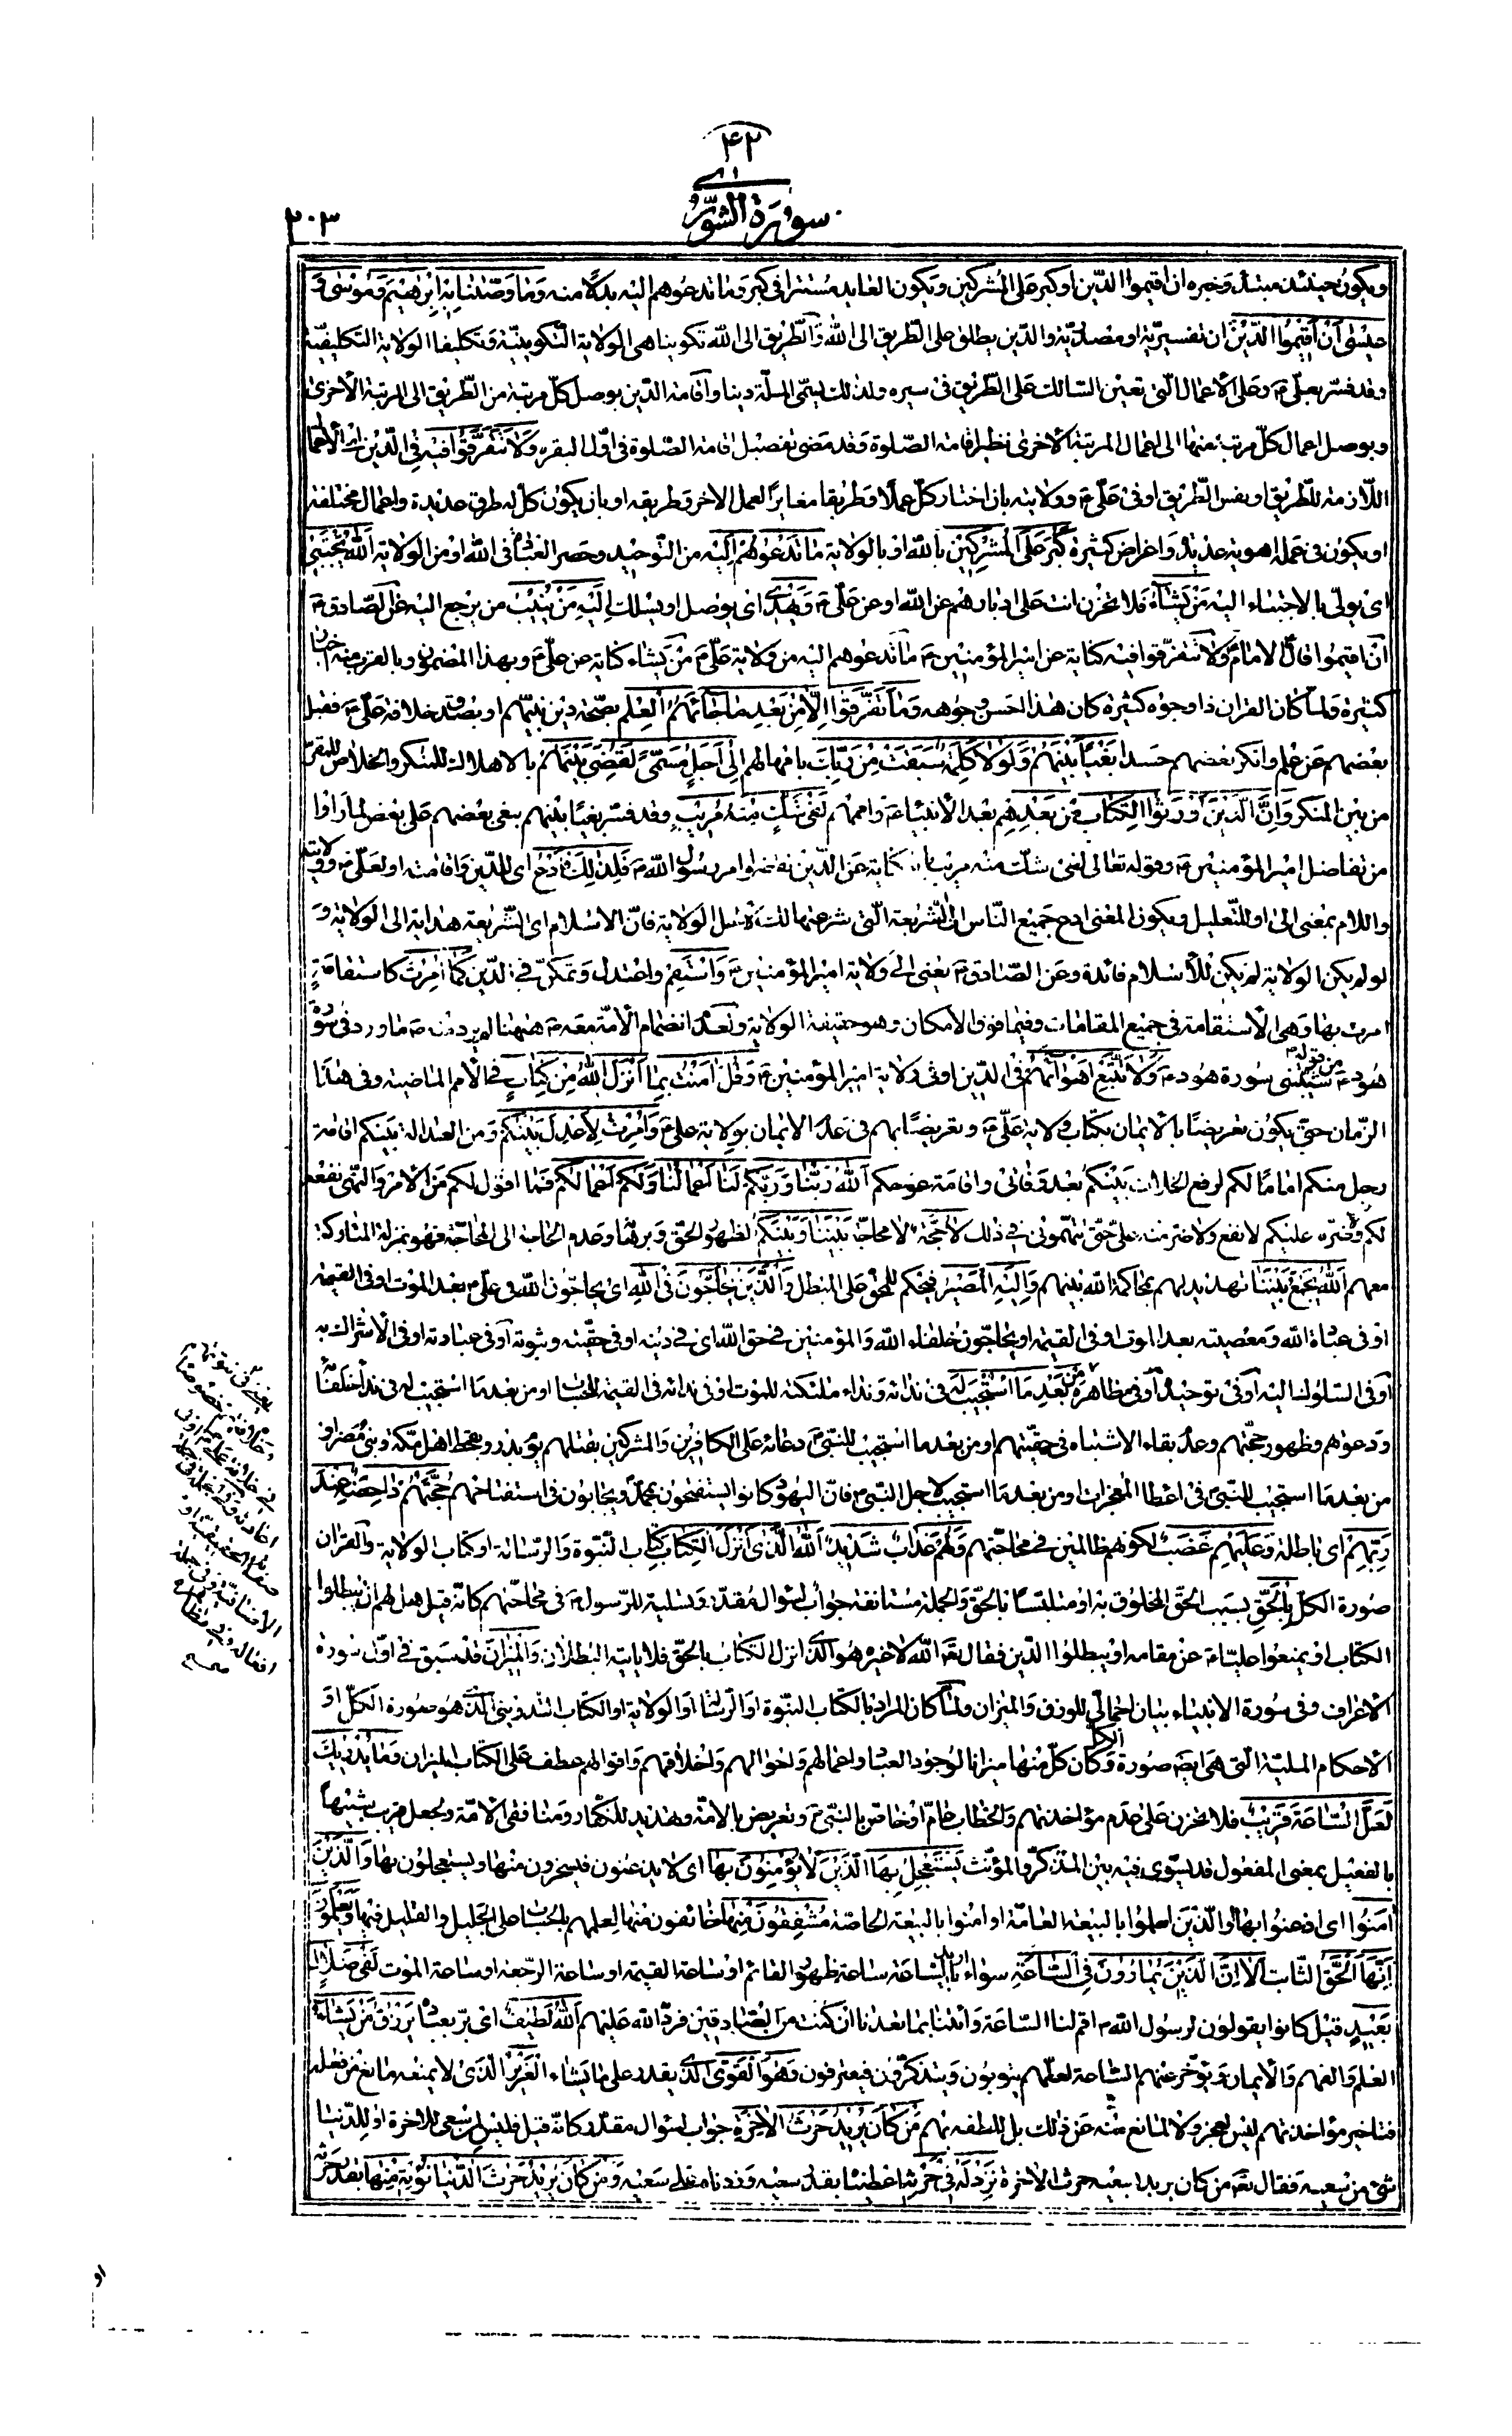 ۴۲
سورة الشورى
۲۰۳
ويكون حينئذ مبتدء وخبره ان اقيموا الدين او كبر على المشركين ويكون العايد مستترا في كبر وما تدعوهم اليه بدلا منه وَمَا وَصَّيْنَا بِهِ إِبْرٰهيمَ وَمُوسٰى وَ
عيسٰى أَنْ أَقيمُوا الدّينَ ان تفسيريّة او مصدريّة والدّين يطلق على الطّريق الى الله والطّريق الى الله تكوينا هى الولاية التّكوينيّة وتكليفا الولاية التكليفيّة
وقد فسّر بعلىّ ع وعلى الاعمال الّتى تعين السّالك على الطّريق فى سيره ولذلك يسمّى الملّة دينا واقامة الدّين يوصل كلّ مرتبة من الطّريق الى المرتبة الاخرى
ويوصل اعمال كلّ مرتبة منها الى اعمال المرتبة الاخرى نظير اقامة الصّلوة وقد مضى تفصيل اقامة الصّلوة فى اوّل البقره وَلاٰ تَتَفَرَّقُوا فيهِ فى الدّين اى الاعما
اللّازمة للطّريق او نفس الطّريق او فى علىّ ع وولايته بان اختار كلّ عملا وطريقا مغايرا لعمل الاخر وطريقه او بان يكون كلّ له طرق عديدة واعمال مختلفة
او يكون فى عمله اهوية عديدة واغراض كثيرة كَبُرَ عَلَى الْمُشْرِكينَ بالله او بالولاية مٰا تَدْعُوهُمْ إِلَيْهِ من التّوحيد وحصر العبادة فى الله او من الولاية اَللّٰهُ يَجْتَبى
اى يولّى بالاجتباء اليه مَنْ يَشٰاءُ فلا تحزن انت على ادبارهم عن الله او عن علىّ ع وَيَهْدى اى يوصل او يسلك إِلَيْهِ مَنْ يُنيبُ من يرجع اليه عن الصّادق ع
ان اقيموا قال الامام ولا تتفرّقوا فيه كناية عن امير المؤمنين ع ما تدعوهم اليه من ولاية علىّ ع من يشاء كناية عن علىّ ع وبهذا المضمون وبالقرب منه اخبار
كثيرة ولمّا كان القران ذا وجوه كثيرة كان هذا احسن وجوهه وَمٰا تَفَرَّقُوا إِلّاٰ مِنْ بَعْدِ مٰا جٰاءَهُمُ الْعِلْمُ بصحّة دين نبيّهم او بصدق خلافة علىّ ع فقبل
بعضهم عن علم وانكر بعضهم حسدا بَغْيًا بَيْنَهُمْ وَلَوْلاٰ كَلِمَةٌ سَبَقَتْ مِنْ رَبِّكَ بامهالهم إِلىٰ أَجَلٍ مُسَمًّى لَقُضِىَ بَيْنَهُمْ بالاهلاك للمنكر والخلاص للمقرّ
من بين المنكر وَإِنَّ الَّذينَ أُورِثُوا الْكِتٰابَ مِنْ بَعْدِهِمْ بعد الانبياء ع واممهم لَفى شَكٍّ مِنْهُ مُريبٍ وقد فسّر بغيا بينهم ببغى بعضهم على بعض لما راوا
من تفاضل امير المؤمنين ع وقوله تعالى لفى شكّ منه مريب كناية عن الّذين نقضوا امر رسول الله ص فَلِذٰلِكَ فَادْعُ اى للدّين واقامته او لعلىّ ع وولايته
واللام بمعنى الى او للتّعليل ويكون المعنى ادع جميع الناس الى الشّريعة الّتى شرعنا لك لاجل الولاية فانّ الاسلام اى الشّريعة هداية الى الولاية و
لو لم يكن الولاية لم يكن للاسلام فائدة وعن الصّادق ع يعنى الى ولاية امير المؤمنين ع وَاسْتَقِمْ واعتدل وتمكّن فى الدّين كَمٰا أُمِرْتَ كاستقامة
امرت بها وهى الاستقامة فى جميع المقامات وفيما فوق الامكان وهو حقيقة الولاية ولعدم انضمام الامّة معه ص هيهنا لم يرد منه ص ما ورد فى سورة
هود ع من قوله ص شيّبتنى سورة هود ع وَلاٰ تَتَّبِعْ أَهْوٰاءَهُمْ فى الدّين او فى ولاية امير المؤمنين ع وَقُلْ اٰمَنْتُ بِمٰا أَنْزَلَ اللّٰهُ مِنْ كِتٰابٍ فى الامم الماضية وفى هذا
الزّمان حتّى يكون تعريضا بالايمان بكتاب ولاية علىّ ع وتعريضا بهم فى عدم الايمان بولاية علىّ ع وَأُمِرْتُ لِأَعْدِلَ بَيْنَكُمُ ومن العدالة بينكم اقامة
رجل منكم اماما لكم لرفع الخلاف بينكم بعد وفاتى واقامة عوجكم اَللّٰهُ رَبُّنٰا وَرَبُّكُمْ لَنٰا أَعْمٰالُنٰا وَلَكُمْ أَعْمٰالُكُمْ فما اقول لكم من الامر والنّهى نفعه
لكم وضرّه عليكم لا نفع ولا ضرّ منه علىّ حتّى تتّهمونى فى ذلك لاٰ حُجَّةَ لا محاجّة بَيْنَنٰا وَبَيْنَكُمُ لظهور الحقّ وبرهانه وعدم الحاجة الى المحاجّة فهو بمنزلة المتاركة
معهم اَللّٰهُ يَجْمَعُ بَيْنَنٰا تهديد لهم بمحاكمة الله بينهم وَإِلَيْهِ الْمَصيرُ فيحكم للمحقّ على المبطل وَالَّذينَ يُحٰاجُّونَ فِى اللّٰهِ اى يحاجّون لله فى علىّ ع بعد الموت او فى القيمة
او فى عبادة الله ومعصيته بعد الموت او فى القيمة او يحاجّون خلفاء الله والمؤمنين فى حق الله اى فى دينه او فى حقّيته وثبوته او فى عبادته او فى الاشراك به
او فى السّلوك اليه او فى توحيده او فى مظاهره مِنْ بَعْدِ مَا اسْتُجيبَ لَهُ فى ندائه ونداء ملئكته للموت او فى ندائه فى القيمة للحساب او من بعد ما استجيب له فى نداء خلفائه
ودعوتهم وظهور حجّتهم وعدم بقاء الاشتباه فى حقّيتهم او من بعد ما استجيب للنّبىّ ص دعائه على الكافرين والمشركين بقتلهم يوم بدر وبقحط اهل مكّة وبنى مضر او
من بعد ما استجيب للنّبىّ ص فى اعطاء المعجزات او من بعد ما استجيب لاجل النّبىّ ص فانّ اليهود كانوا يستفتحون بمحمّد ص ويجابون فى استفتاحهم حُجَّتُهُمْ دٰاحِضَةٌ عِنْدَ
رَبِّهِمْ اى باطلة وَعَلَيْهِمْ غَضَبٌ لكونهم ظالمين فى محاجّتهم وَلَهُمْ عَذٰابٌ شَديدٌ اَللّٰهُ الَّذى أَنْزَلَ الْكِتٰابَ كتاب النّبوّة والرّسالة او كتاب الولاية والقران
صورة الكلّ بِالْحَقِّ بسبب الحقّ المخلوق به او متلبّسا بالحقّ والجملة مستانفة جواب لسؤال مقدّر وتسلية للرّسول ص فى محاجّتهم كانّه قيل هل لهم ان يبطلوا
الكتاب او يمنعوا عليّا ع عن مقامه او يبطلوا الدّين فقال تع الله لا غيره هو الّذى انزل الكتاب بالحقّ فلا ياتيه البطلان وَالْميزٰانَ قد سبق فى اوّل سورة
الاعراف وفى سورة الانبياء بيان اجمالىّ للوزن والميزان ولمّا كان المراد بالكتاب النبّوة او الرّسالة او الولاية او الكتاب التّدوينى الّذى هو صورة الكلّ او
الاحكام الملّية الّتى هى ايضا صورة الكلّ وكان كلّ منها ميزانا لوجود العباد واعمالهم واحوالهم واخلاقهم واقوالهم عطف على الكتاب الميزان وَمٰا يُدْريكَ
لَعَلَّ السّٰاعَةَ قَريبٌ فلا تحزن على عدم مؤاخذتهم والخطاب عامّ او خاصّ بالنّبىّ ص وتعريض بالامّة وتهديد للكفّار ومنافقى الامّة ولجعل قريب شبيها
بالفعيل بمعنى المفعول قد يسوّى فيه بين المذكّر والمؤنّث يَسْتَعْجِلُ بِهَا الَّذينَ لاٰ يُؤْمِنُونَ بِهٰا اى لا يذعنون فيسخرون منها ويستعجلون بها وَالَّذينَ
اٰمَنُوا اى اذعنوا بها او الّذين اسلموا بالبيعة العامّة او امنوا بالبيعة الخاصّة مُشْفِقُونَ مِنْهٰا خائفون منها لعلمهم بالحساب على الجليل والقليل فيها وَيَعْلَمُونَ
أَنَّهَا الْحَقُّ الثّابت أَلاٰ إِنَّ الَّذينَ يُمٰارُونَ فِى السّٰاعَةِ سواء اريد بالسّاعة ساعة ظهور القائم او ساعة القيمة او ساعة الرّجعة او ساعة الموت لَفى ضَلاٰلٍ
بَعيدٍ قيل كانوا يقولون لرسول الله ص اقم لنا السّاعة وائتنا بما تعدنا ان كنت من الصّادقين فردّ الله عليهم اَللّٰهُ لَطيفٌ اى برّ بعباده يَرْزُقُ مَنْ يَشٰاءُ
العلم والفهم والايمان ويؤخّر عنهم السّاعة لعلّهم يتوبون ويتذكّرون فيعترفون وَهُوَ الْقَوِىُّ الّذى يقدر على ما يشاء الْعَزيزُ الّذى لا يمنعه مانع من فعله
فتاخير مؤاخذتهم ليس لعجز ولا لمانع منه عن ذلك بل للطفه بهم مَنْ كٰانَ يُريدُ حَرْثَ الْاٰخِرَةِ جواب لسؤال مقدّر كانّه قيل فليس لمن سعى للاخرة او للدّنيا
شىء من سعيه فقال تع من كان يريد بسعيه حرث الاخرة نَزِدْ لَهُ فى حَرْثِهِ اعطيناه بقدر سعيه وزدنا على سعيه وَمَنْ كٰانَ يُريدُ حَرْثَ الدُّنْيٰا نُؤْتِهِ مِنْهٰا بقدر حرثه
او